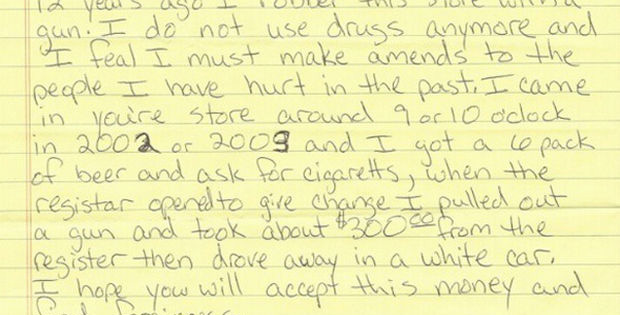 12 years ago I robbed this store with a
gun. I do not use drugs anymore and
I feal I must make amends to the
people I have hurt in the past. I came
in you're store around 9 or 10 oclock
in 2002 or 2003 and I got a 6 pack
of beer and ask for cigaretts, when the
registar opened to give change I pulled out
a gun and took about $300.00 from the
register then drove away in a white car.
I hope you will accept this money and